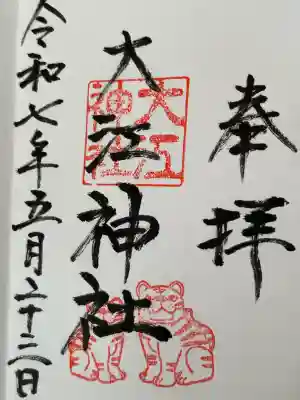 奉拝
大江神社
大江
神社
令和七年五月二十二日